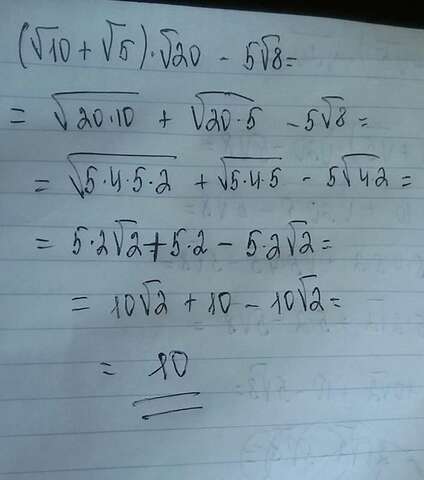 (√10 + √5)·√20 - 5√8 =
= √20·10 + √20·5 - 5√8 =
= √5·4·5·2 + √5·4·5 - 5√42 =
= 5·2√2 + 5·2 - 5·2√2 =
= 10√2 + 10 - 10√2 =
= 10